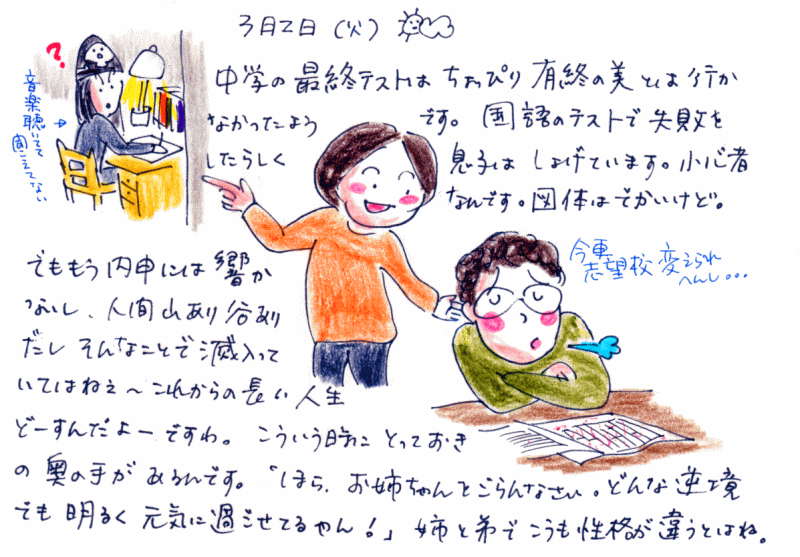 3月2日(火)
中学の最終テストは ちょっぴり 有終の美とは行か
なかったよう
です。国語のテストで失敗を
したらしく
息子は しょげています。小心者
なんです。図体はでかいけど。
?
音楽聴いてて
聞こえてない
今更
志望校変えられ
へんし...
でももう内申には響か
ないし、人間山あり谷あり
だし そんなことで滅入って
いてはねぇ~これからの長い人生
どーすんだよーですわ。こういう時に とっておき
の奥の手が あるんです。「ほら、お姉ちゃんをごらんなさい。どんな逆境
でも明るく元気に過ごせてるやん!」姉と弟でこうも性格が違うとはね。